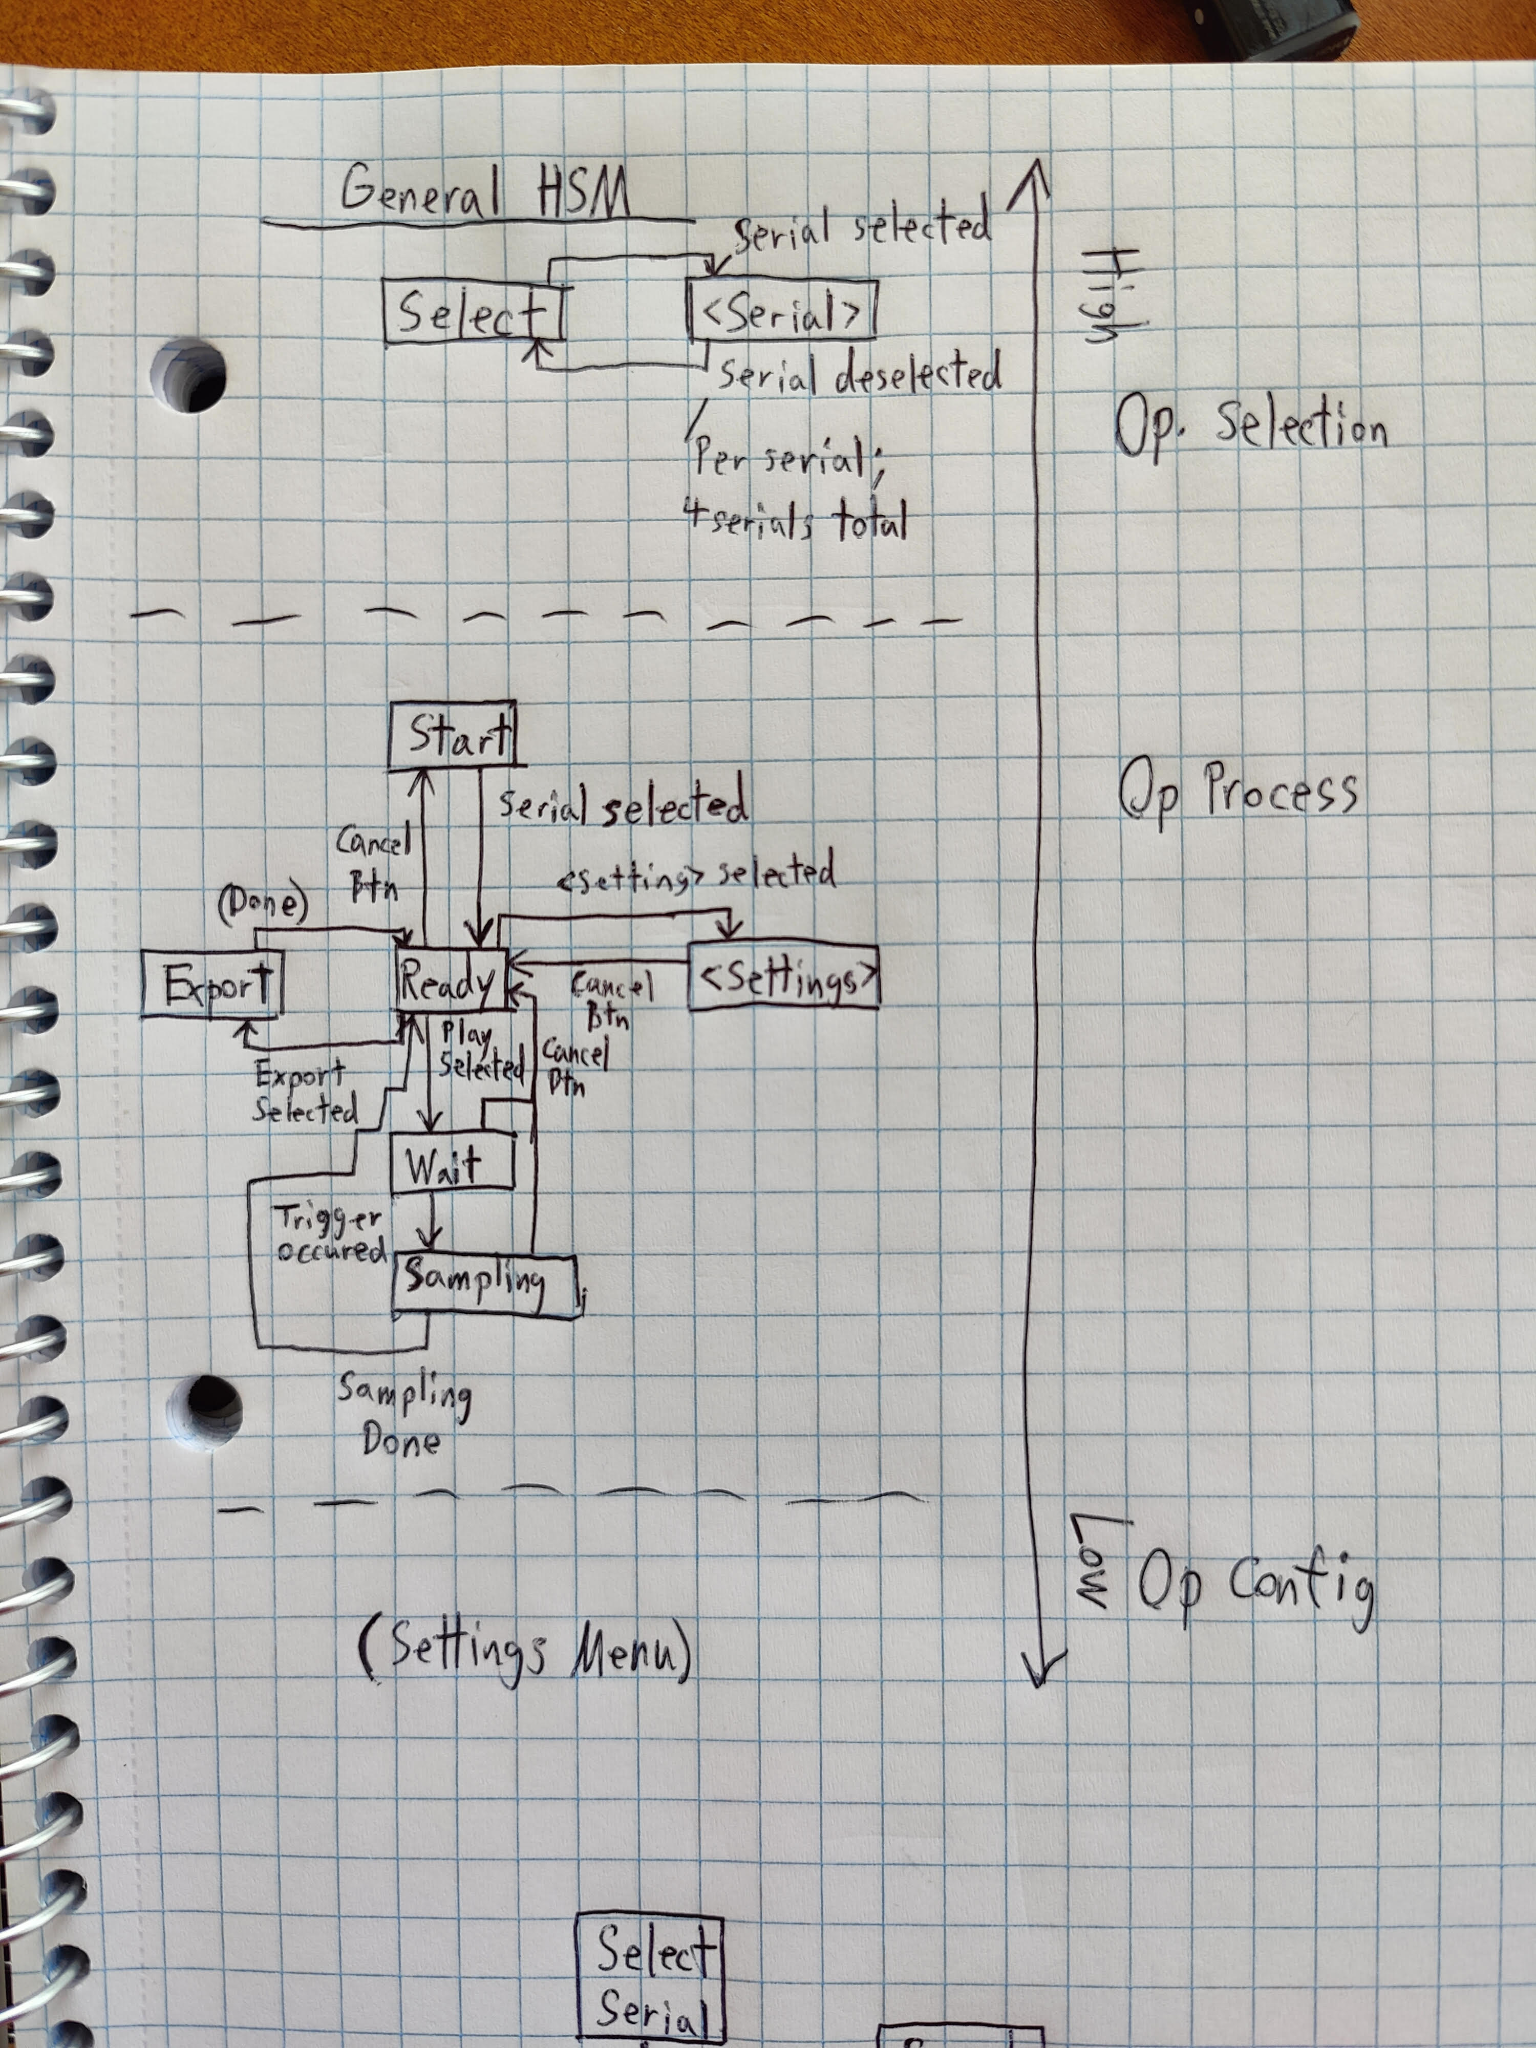 General HSM
Serial selected
Select
<Serial>
Serial deselected
Per serial;
4 serials total
High
Op. Selection
Start
Serial selected
Cancel
Btn
<setting> selected
(Done)
Export
Ready
<Settings>
Cancel
Btn
Play
Selected
Cancel
Btn
Export
Selected
Wait
Trigger
occured
Sampling
Sampling
Done
Op Process
Low
Op Config
(Settings Menu)
Select
Serial